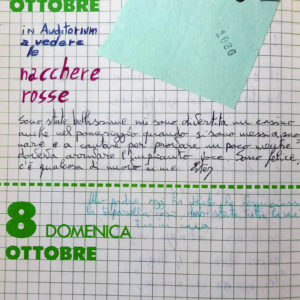 OTTOBRE
1086
in Auditorium
a vedere
le
nacchere
rosse
Sono state bellissime mi sono divertita un casino
anche nel pomeriggio quando si sono messi a suo
nare e a cantare per provare un poco anche
doveva arrivare l'impianto voce. Sono felice,
c'è qualcosa di nuovo in me
8 DOMENICA
OTTOBRE
sono stata tutta la
in casa